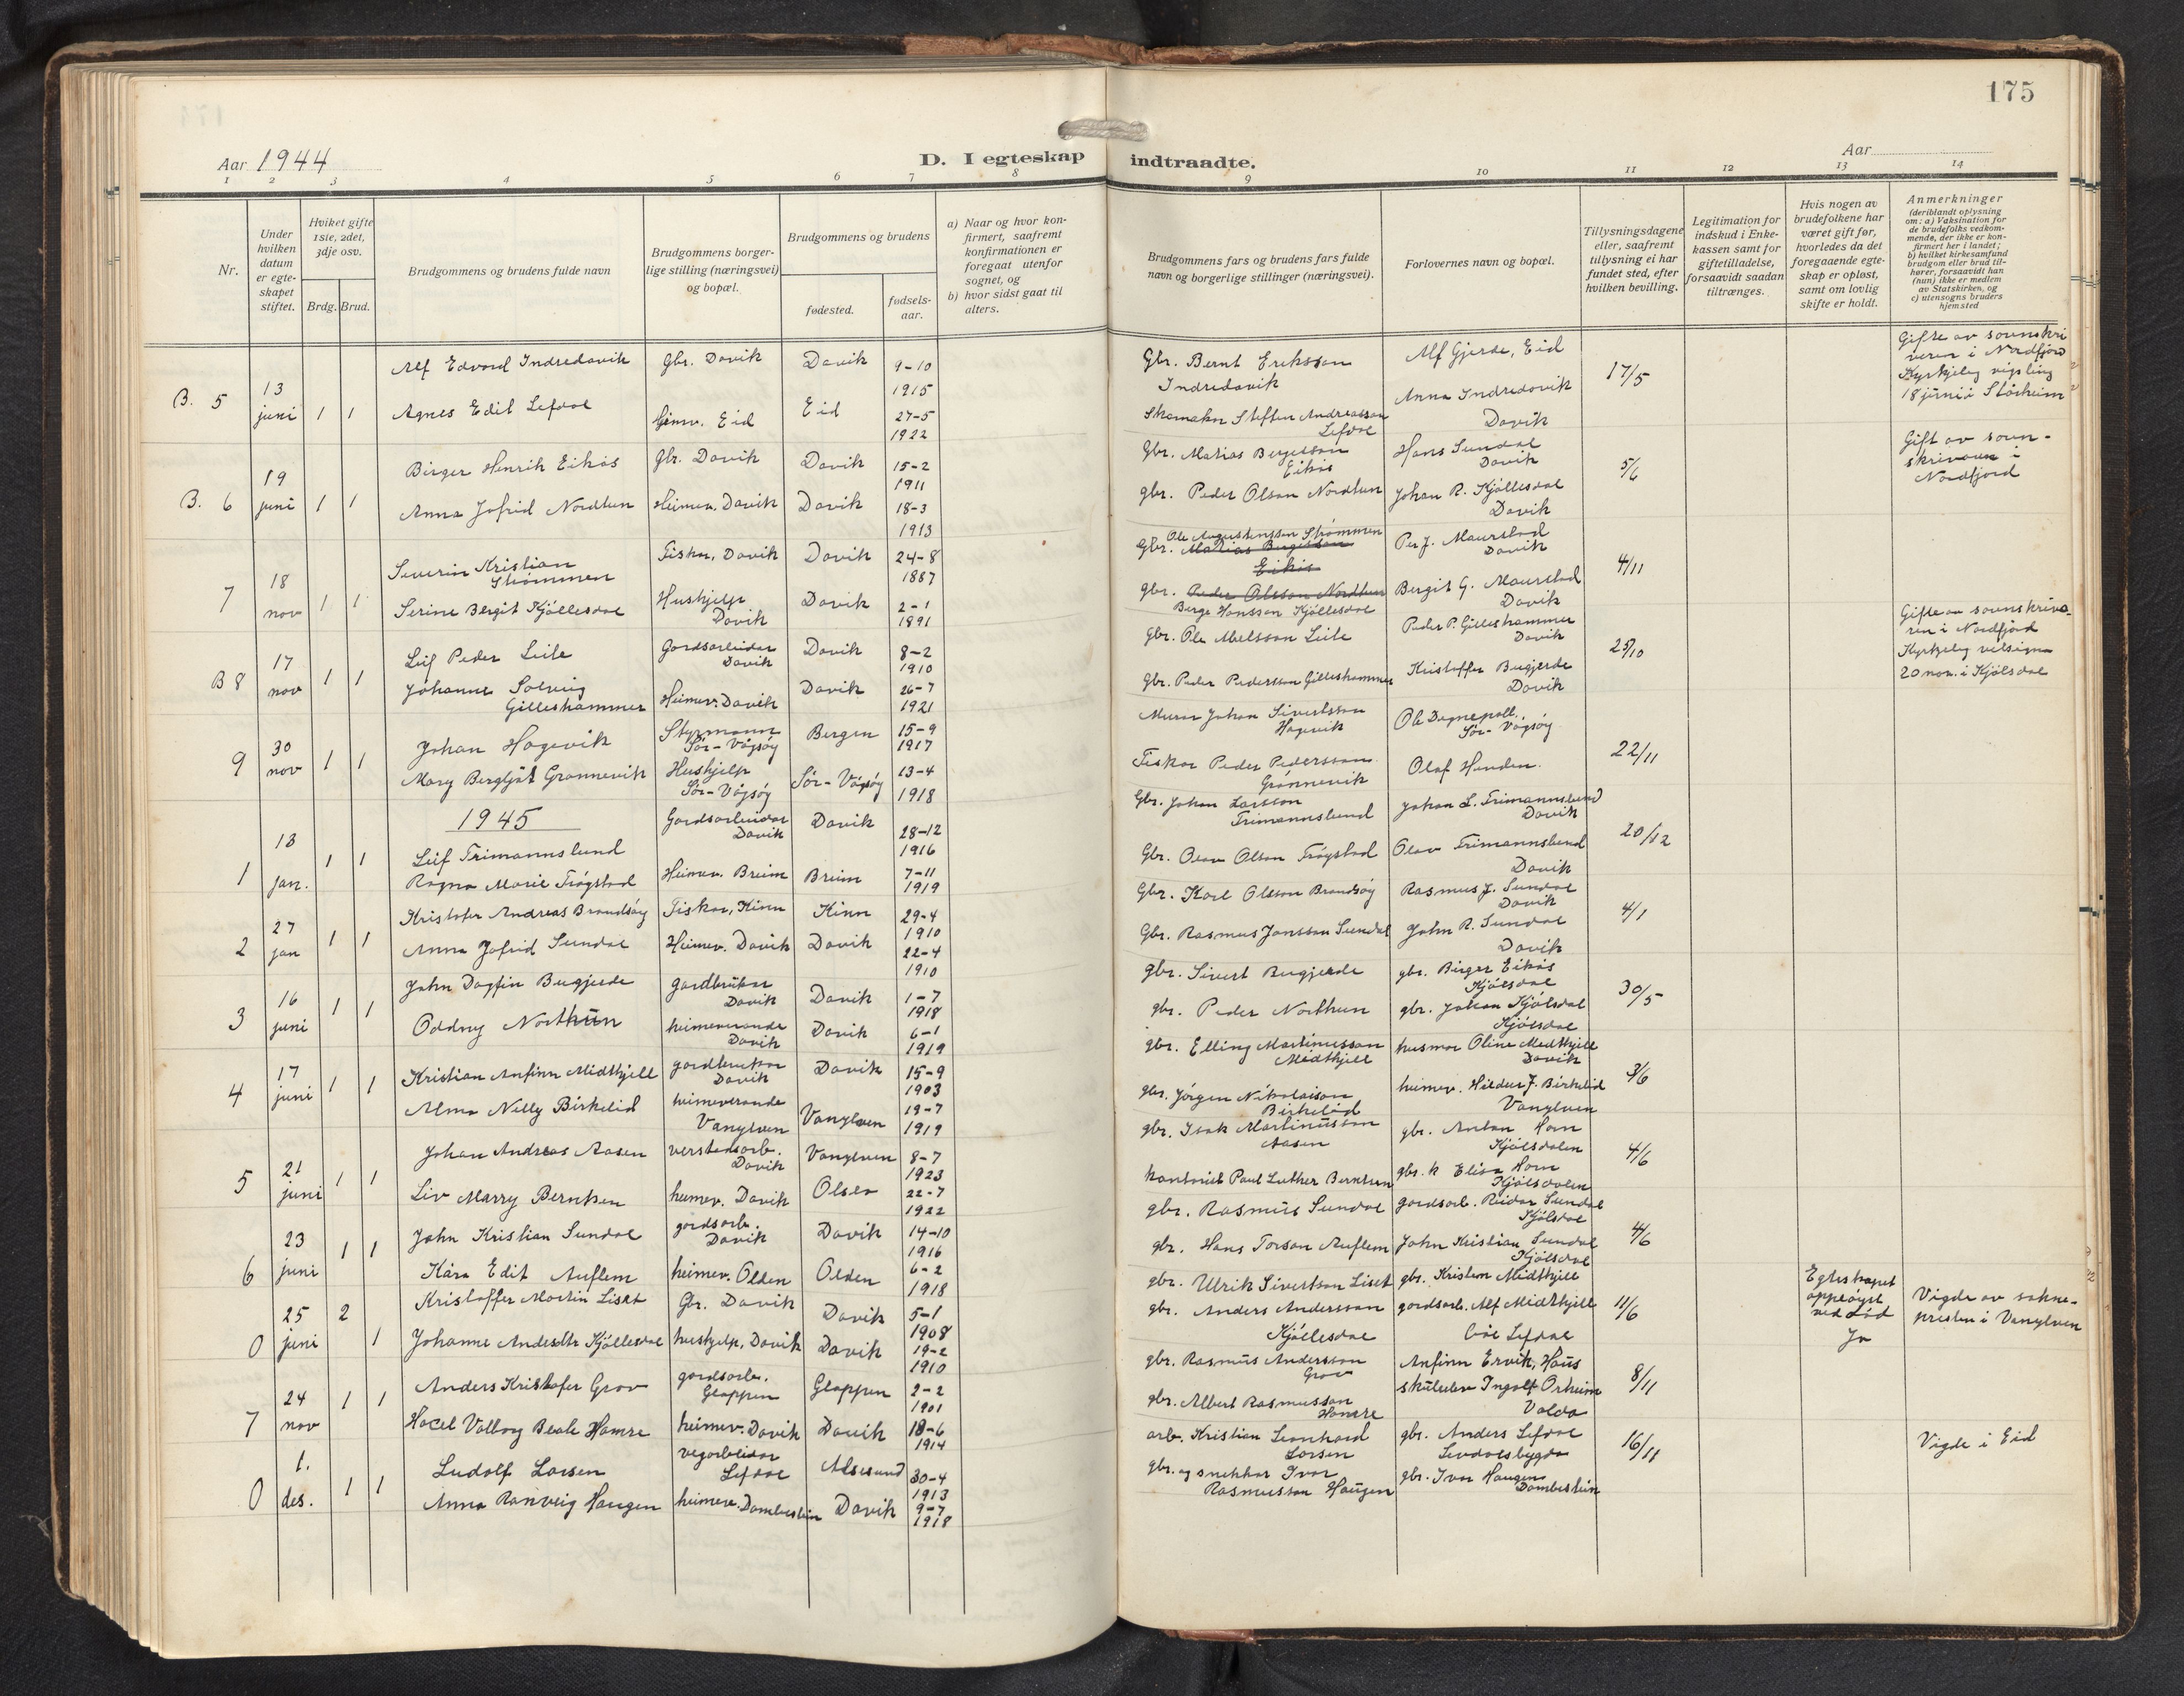 175
Aar 1944
D. I egteskap indtraadte.
Aar
1 2 3 4 5 6 7 8 9 10 11 12 13 14
Nr.
Under hvilken datum er egteskapet stiftet.
Hviket gifte 1ste, 2det, 3dje osv.
Brdg. Brud.
Brudgommens og brudens fulde navn
Brudgommens borgerlige stilling (næringsvei) og bopæl.
Brudgommens og brudens
fødested.
fødselsaar.
a) Naar og hvor konfirmert, saafremt konfirmationen er foregaat utenfor sognet, og
b) hvor sidst gaat til alters.
Brudgommens fars og brudens fars fulde navn og borgerlige stillinger (næringsvei).
Forlovernes navn og bopæl.
Tillysningsdagene eller, saafremt tillysning ei har fundet sted, efter hvilken bevilling.
Legitimation for indskud i Enkekassen samt for giftetilladelse, forsaavidt saadan tiltrænges.
Hvis nogen av brudefolkene har været gift før, hvorledes da det foregaaende egteskap er opløst, samt om lovlig skifte er holdt.
Anmerkninger
(deriblandt oplysning om: a) Vaksination for de brudefolks vedkommende, der ikke er konfirmert her i landet;
b) hvilket kirkesamfund brudgom eller brud tilhører, forsaavidt han (hun) ikke er medlem av Statskirken, og
c) utensogns bruders hjemsted
B. 5 13 juni 1 1
Alf Edvard Indredavik gbr. Davik Davik 9-10 1915
Agnes Edit Lefdal Heimv. Eid Eid 27-5 1922
Gbr. Bernt Eriksson Indredavik
Skomakar Steffen Andreasson Lefdal
Alf Gjerde, Eid
Anna Indredavik Davik
17/5
Gifte av sorenskriveren i Nordfjord
Kyrkjeleg vigsling 18 juni i Stårheim
B. 6 19 juni 1 1
Birger Henrik Eikås gbr. Davik Davik 15-2 1911
Anna Jofrid Nordhun Heimev. Davik Davik 18-3 1913
Gbr. Matias Bergesson Eikås
gbr. Peder Olson Nordhun
Hans Sundal Davik
Johan R. Kjøllesdal Davik
5/6
Gift av sorenskrivaren i Nordfjord
7 18 nov 1 1
Severin Kristian Strømmen Fiskar, Davik Davik 24-8 1887
Serine Bergit Kjøllesdal Hushjelp Davik Davik 2-1 1891
Ole Augustinsson Strømmen
Gbr. Matias Bergesson Eikås
gbr. Peder Olsson Nordhun
Berge Hansson Kjøllesdal
Per J. Maurstad Davik
Bergit G. Maurstad Davik
4/11
B 8 17 nov 1 1
Leif Peder Leite Gardsarbeidar Davik Davik 8-2 1910
Johanne Solveig Gilleshammer Heimev. Davik Davik 26-7 1921
Gbr. Ole Abelsson Leite
Gbr. Peder Pedersson Gilleshammer
Peder P. Gilleshammer Davik
Kristoffer Bugjerde Davik
25/10
Gifte av sorenskrivaren i Nordfjord
Kyrkjeleg velsigna 20 nov. i Kjølsdal
9 30 nov 1 1
Johan Hagevik Styrmann Sør-Vågsøy Bergen 15-9 1917
Mary Bergljot Grønnevik Hushjelp Sør-Vågsøy Sør-Vågsøy 13-4 1918
Murar Johan Sivertsson Hagevik
Fiskar Peder Pedersson Grønnevik
Ole Degnepoll. Sør-Vågsøy
Olaf Henden.
22/11
1945
1 13 jan. 1 1
Leif Frimannslund Gardsarbeidar Davik Davik 28-12 1916
Ragna Marie Frøystad Heimev. Breim Breim 7-11 1919
Gbr. Johan Larsson Frimannslund
Gbr. Olav Olson Frøystad
Johan L. Frimannslund Davik
Olav Frimannslund Davik
20/12
2 27 jan 1 1
Kristofer Andreas Brandsøy Fiskar, Kinn Kinn 29-4 1910
Anna Jofrid Sundal Heimev. Davik Davik 22-4 1910
Gbr. Karl Olsson Brandsøy
Gbr. Rasmus Jonsson Sundal
Rasmus J. Sundal Davik
John R. Sundal Davik
4/1
3 16 juni 1 1
John Dagfin Bugjerde gardbrukar Davik Davik 1-7 1918
Oddny Northun heimeverande Davik Davik 6-1 1919
gbr. Sivert Bugjerde
gbr. Peder Northun
gbr. Birger Eikås Kjølsdal
gbr. Johan Kjølsdal Kjølsdal
30/5
4 17 juni 1 1
Kristian Anfinn Midthjell gardbrukar Davik Davik 15-9 1903
Alma Nelly Birkelid heimeverande Vanylven Vanylven 19-7 1919
gbr. Elling Martinusson Midthjell
gbr. Jørgen Nikolaison Birkelid
husmor Oline Midthjell Davik
heimev. Hildur J. Birkelid Vanylven
3/6
5 21 juni 1 1
Johan Andreas Aasen verstadsarb. Davik Vanylven 8-7 1923
Liv Marry Berntsen heimev. Davik Oslo 22-7 1922
gbr. Isak Martinusson Aasen
kontorist Paul Luther Berntsen
gbr. Anton Horn Kjølsdalen
gbr.k Elisa Horn Kjølsdalen
4/6
6 23 juni 1 1
John Kristian Sundal gardsarb. Davik Davik 14-10 1916
Kåra Edit Auflem heimev. Olden Olden 6-2 1918
gbr. Rasmus Sundal
gbr. Hans Torson Auflem
gardsarb. Reidar Sundal Kjølsdal
John Kristian Sundal Kjølsdal
4/6
0 25 juni 2 1
Kristoffer Martin Liset Gbr. Davik Davik 5-1 1908
Johanne Andersdtr Kjøllesdal hushjelp, Davik Davik 19-2 1910
gbr. Ulrik Sivertson Liset
gbr. Anders Andersson Kjøllesdal
gbr. Kristen Midthjell
gardsarb. Alf Midthjell
Lefdal
11/6
Egteskapet oppløyst ved død
Ja
Vigde av soknepresten i Vanylven
7 24 nov 1 1
Anders Kristofer Grov gardsarb. Gloppen Gloppen 2-2 1901
Hacel Valborg Beate Hamre heimev. Davik Davik 18-6 1914
gbr. Rasmus Andersson Grov
gbr. Albert Rasmusson Hamre
Anfinn Ervik, Haus
skuleelev Ingolf Orheim Volda
8/11
0 1. des. 1 1
Ludolf Larsen vegarbeidar Lefdal Ålesund 30-4 1913
Anna Ranveig Haugen heimev. Dombestein Davik 9-7 1918
arb. Kristian Leonhard Larsen
gbr. og snekkar Ivar Rasmusson Haugen
gbr. Anders Lefdal Levdalsbygda
gbr. Ivar Haugen Dombestein
16/11
Vigde i Eid